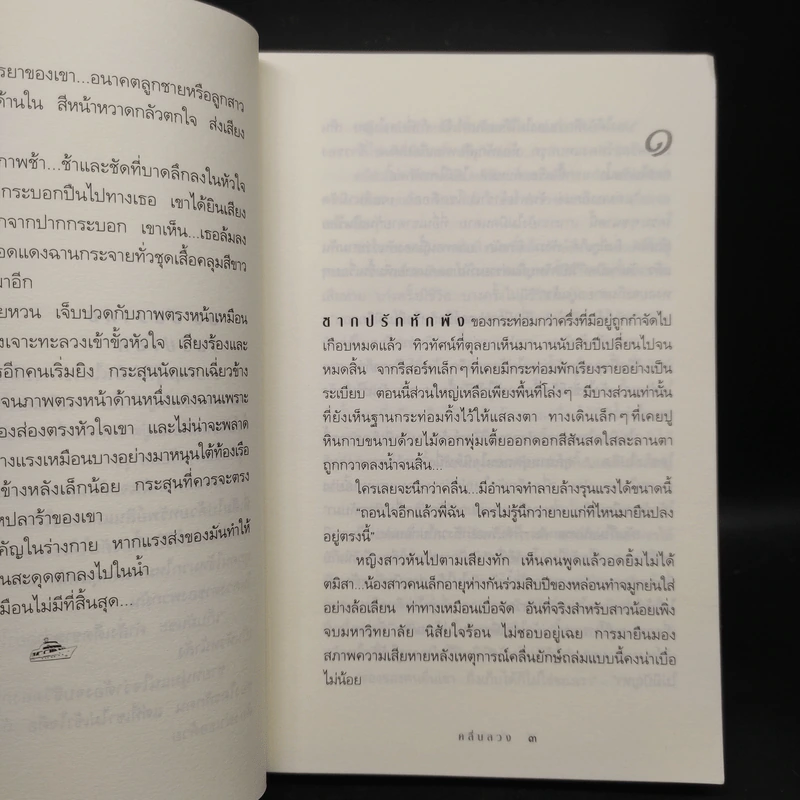 รยาของเขา...อนาคตลูกชายหรือลูกสาว
ด้านใน สีหน้าหวาดกลัวตกใจ ส่งเสียง
ภาพช้า...ช้าและชัดที่บาดลึกลงในหัวใจ
กระบอกปืนไปทางเธอ เขาได้ยินเสียง
กจากปากกระบอก เขาเห็น...เธอล้มลง
อดแดงฉานกระจายทั่วชุดเสื้อคลุมสีขาว
มาอีก
ยหวน เจ็บปวดกับภาพตรงหน้าเหมือน
งเจาะทะลวงเข้าขั้วหัวใจ เสียงร้องและ
รอีกคนเริ่มยิง กระสุนนัดแรกเฉี่ยวข้าง
จนภาพตรงหน้าด้านหนึ่งแดงฉานเพราะ
องส่องตรงหัวใจเขา และไม่น่าจะพลาด
างแรงเหมือนบางอย่างมาหนุนใต้ท้องเรือ
ข้างหลังเล็กน้อย กระสุนที่ควรจะตรง
หปลาร้าของเขา
คัญในร่างกาย หากแรงส่งของมันทำให้
นสะดุดตกลงไปในน้ำ
มือนไม่มีที่สิ้นสุด...
๑
ซากปรักหักพัง ของกระท่อมกว่าครึ่งที่มีอยู่ถูกกำจัดไป
เกือบหมดแล้ว ทิวทัศน์ที่ตุลยาเห็นมานานนับสิบปีเปลี่ยนไปจน
หมดสิ้น จากรีสอร์ทเล็กๆ ที่เคยมีกระท่อมพักเรียงรายอย่างเป็น
ระเบียบ ตอนนี้ส่วนใหญ่เหลือเพียงพื้นที่โล่งๆ มีบางส่วนเท่านั้น
ที่ยังเห็นฐานกระท่อมทิ้งไว้ให้แสลงตา ทางเดินเล็กๆ ที่เคยปู
หินกาบขนาบด้วยไม้ดอกพุ่มเตี้ยออกดอกสีสันสดใสละลานตา
ถูกกวาดลงน้ำจนสิ้น...
ใครเลยจะนึกว่าคลื่น...มีอำนาจทำลายล้างรุนแรงได้ขนาดนี้
"ถอนใจอีกแล้วพี่ฉัน ใครไม่รู้นึกว่ายายแก่ที่ไหนมายืนปลง
อยู่ตรงนี้"
หญิงสาวหันไปตามเสียงทัก เห็นคนพูดแล้วอดยิ้มไม่ได้
ตมิสา...น้องสาวคนเล็กอายุห่างกันร่วมสิบปีของหล่อนทำจมูกย่นใส่
อย่างล้อเลียน ท่าทางเหมือนเบื่อจัด อันที่จริงสำหรับสาวน้อยเพิ่ง
จบมหาวิทยาลัย นิสัยใจร้อน ไม่ชอบอยู่เฉย การมายืนมอง
สภาพความเสียหายหลังเหตุการณ์คลื่นยักษ์ถล่มแบบนี้คงน่าเบื่อ
ไม่น้อย
คลื่นลวง ๓